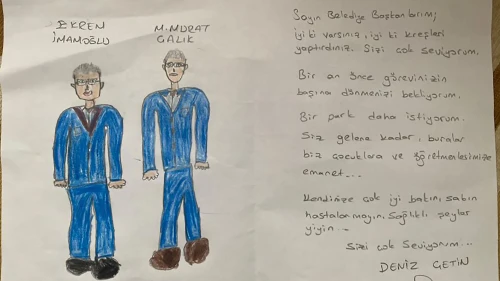 EKREM
İMAMOĞLU
M. MURAT
ÇALIK
Sayın Belediye Başkanlarım;
iyi ki varsınız, iyi ki kreşleri
yaptırdınız. Sizi çok seviyorum.
Bir an önce görevinizin
başına dönmenizi bekliyorum.
Bir park daha istiyorum.
Siz gelene kadar, buralar
biz çocuklara ve öğretmenlerimize
emanet...
Kendinize çok iyi bakın, sakın
hastalanmayın. Sağlıklı şeyler
yiyin...
Sizi çok seviyorum...
DENİZ ÇETİN